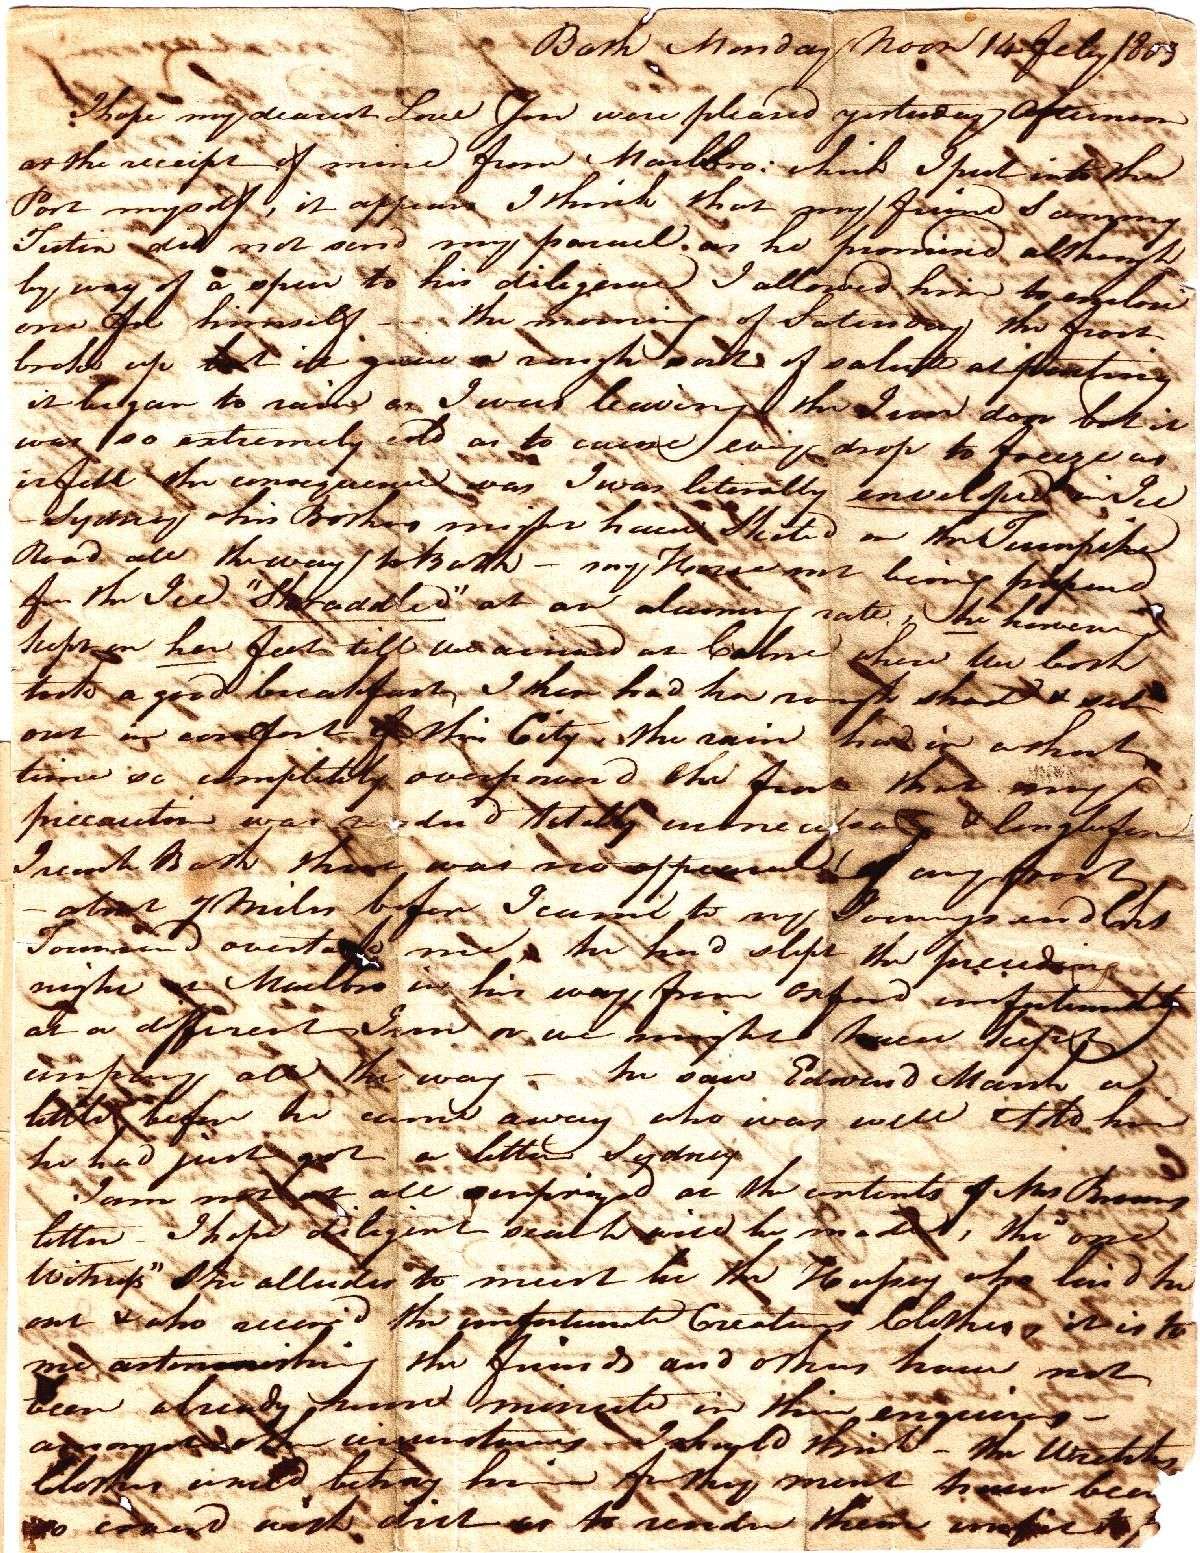 Bath Monday Noon 14 Feby 1803
I hope my dearest Love You were pleased yesterday Afternoon
at the receipt of mine from Marlbro: which I put into the
Post myself, it appears I think that my friend Sammy
did not send my parcel as he promised although
by way of a spur to his diligence I allowed him to enclose
one for himself — the morning of Saturday the frost
broke up but it gave a rough sort of salute at parting
it began to rain as I was leaving the Inn door but it
was so extremely cold as to cause every drop to freeze as
it fell the consequence was I was literally enveloped in Ice
- Sydney & his Brothers might have Skated on the Turnpike
Road all the way to Bath – my Horse not being prepared
for the Ice "Straddled" at an alarming rate, she however
kept on her feet till we arrived at Calne where we both
took a good breakfast, I then had her rough shod & set
out in comfort for this City. the rain had in a short
time so completely overpowered the frost that my
precaution was rendered totally unnecessary & long before
I reach Bath there was no appearance of any frost
- about 7 Miles before I came to my Journeys end
Townsend overtook me, he had slept the preceding
night at Marlbro in his way from Oxford unfortunately
at a different Inn or we might have kept
company all the way – he saw Edward Marsh a
little before he came away who was well & told him
he had just got a letter Sydney
I am not at all surprized at the contents of Mrs
letter – I hope diligent search will be made, the "one
Witness" she alludes to must be the Hussey who laid he
out & who received the unfortunate Creatures Clothes, it is to
me astonishing the friends and others have not
been already more minute in their enquiries –
amongst other circumstances I should think – the Wretches
Clothes would betray him for they must have been
so covered with dirt as to render them unfit to